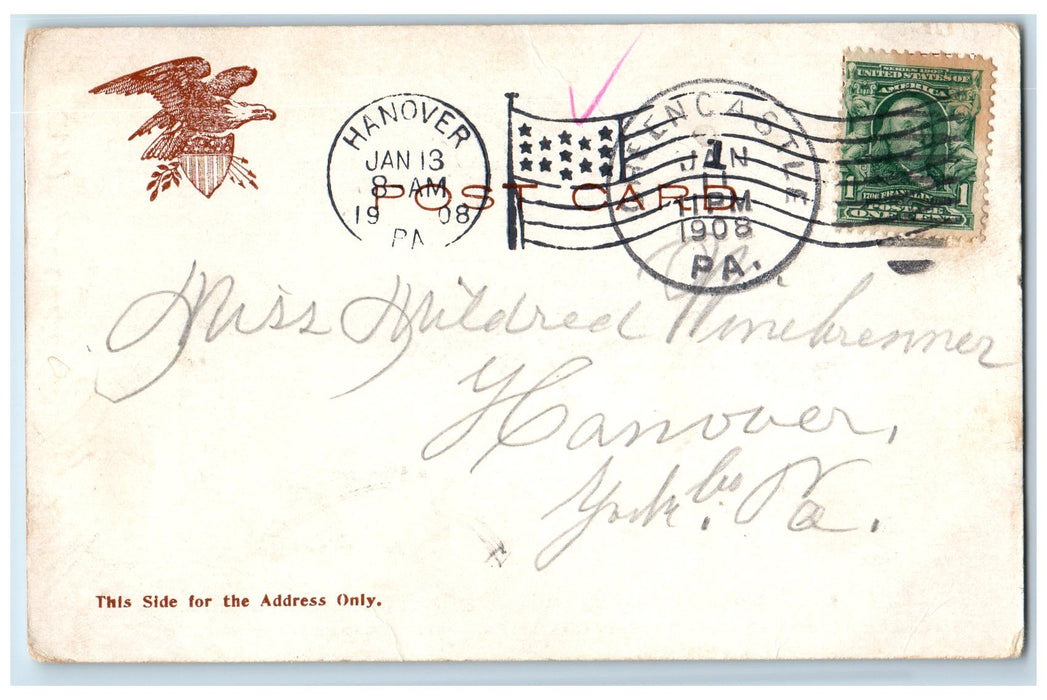 HANOVER
JAN 13
8-AM
1908
PA
GREENCASTLE
JAN
11 PM
1908
PA.
SERIES 1902
UNITED STATES OF
AMERICA
FRANKLIN
POSTAGE
1 ONE CENT 1
POST CARD
Miss Mildred Winebrenner
Hanover,
York Co. Pa.
This Side for the Address Only.